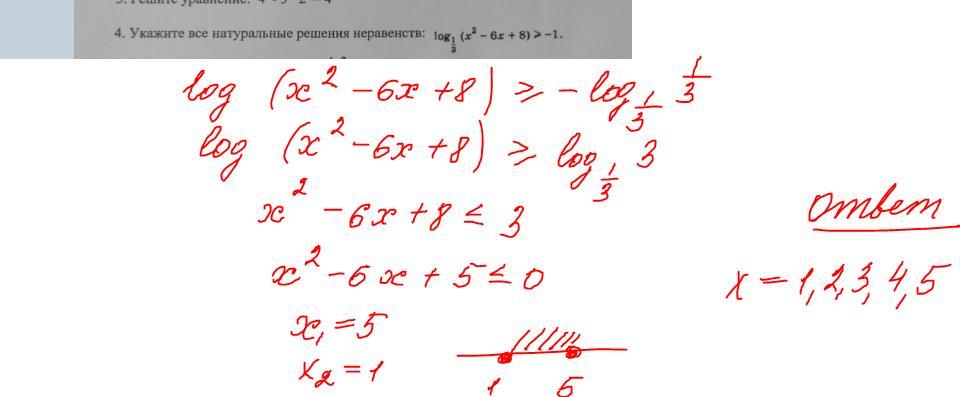 4. Укажите все натуральные решения неравенств: log_{1/3} (x² − 6x + 8) ⩾ −1.
log (x² − 6x + 8) ⩾ − log_{1/3} 1/3
log (x² − 6x + 8) ⩾ log_{1/3} 3
x² − 6x + 8 ≤ 3
x² − 6x + 5 ≤ 0
x₁ = 5
x₂ = 1
1 5
ответ
x = 1, 2, 3, 4, 5